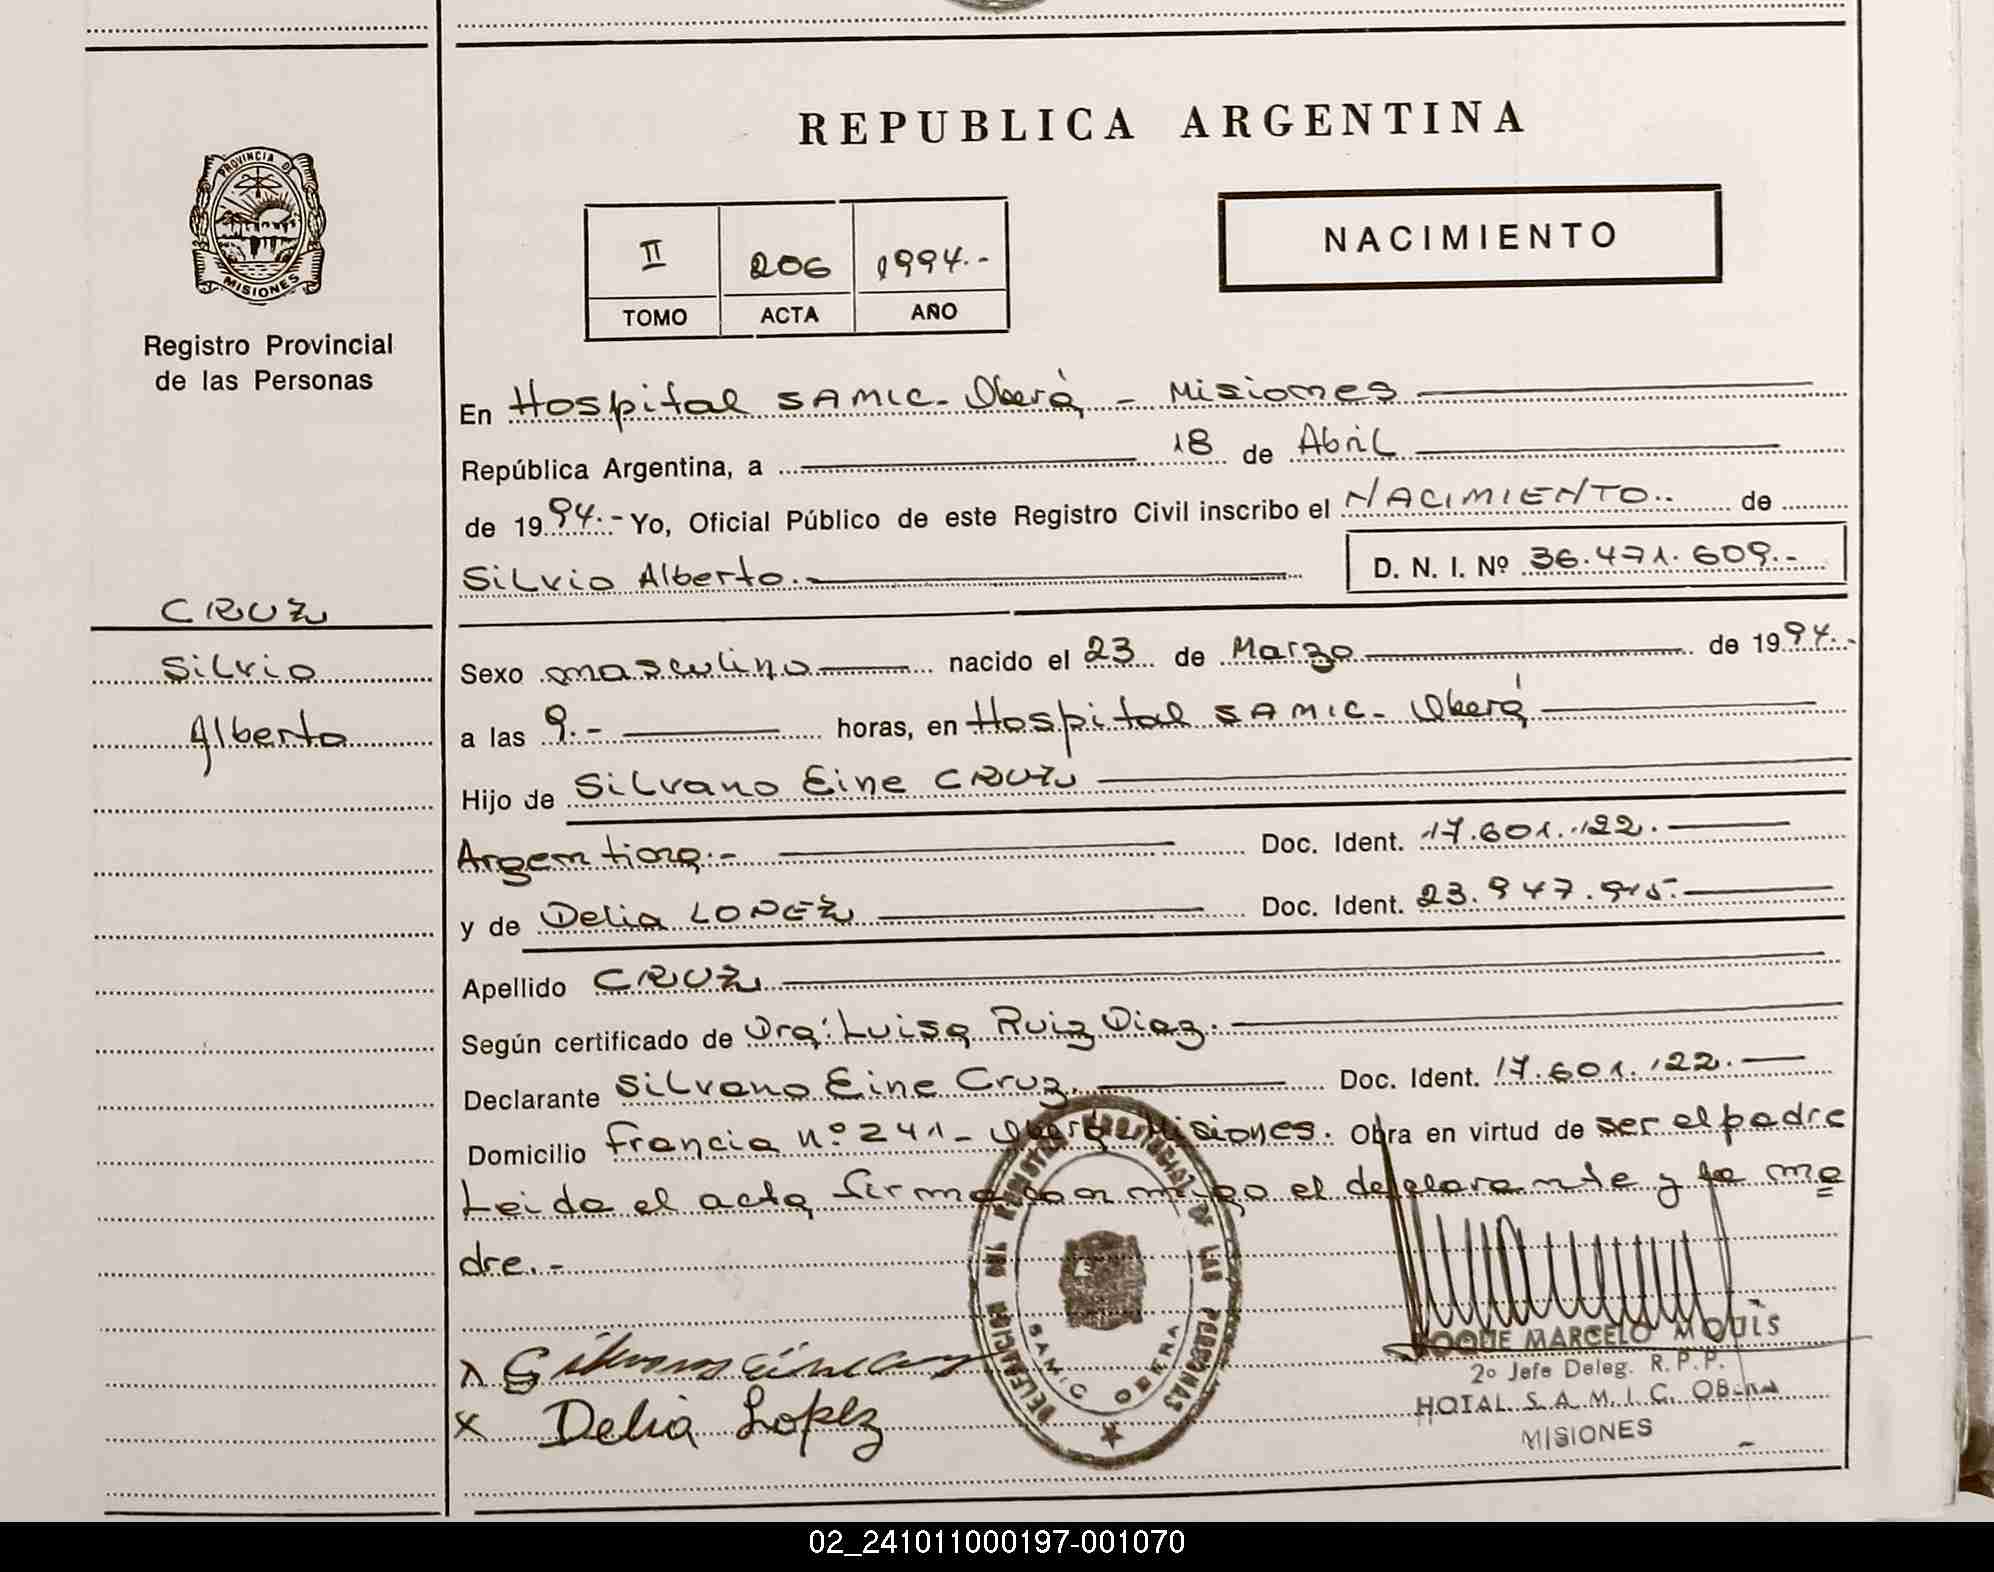 REPUBLICA ARGENTINA
PROVINCIA DE
MISIONES
Registro Provincial
de las Personas
II 206 1994.-
TOMO ACTA AÑO
NACIMIENTO
En Hospital SAMIC - Oberá - Misiones
República Argentina, a 18 de Abril
de 1994.- Yo, Oficial Público de este Registro Civil inscribo el NACIMIENTO.. de
Silvio Alberto.- D. N. I. Nº 36.471.609.-
CRUZ
Silvio
Alberto
Sexo masculino nacido el 23 de Marzo de 1994.-
a las 9.- horas, en Hospital SAMIC - Oberá
Hijo de Silvano Eine CRUZ
Argentina.- Doc. Ident. 17.601.122.-
y de Delia LOPEZ Doc. Ident. 23.947.915.-
Apellido CRUZ
Según certificado de Dra: Luisa Ruiz Diaz.
Declarante Silvano Eine Cruz. Doc. Ident. 17.601.122.-
Domicilio Francia nº 241 - Oberá - Misiones. Obra en virtud de ser el padre
Leida el acta firma con migo el declarante y la ma
dre.-
DELEGACION DEL REGISTRO PROVINCIAL DE LAS PERSONAS
SAMIC OBERA
x Silvano Eine Cruz
x Delia Lopez
ROQUE MARCELO MOUIS
2º Jefe Deleg. R. P. P.
HOTAL S. A. M. I. C. OBERA
MISIONES
02_241011000197-001070